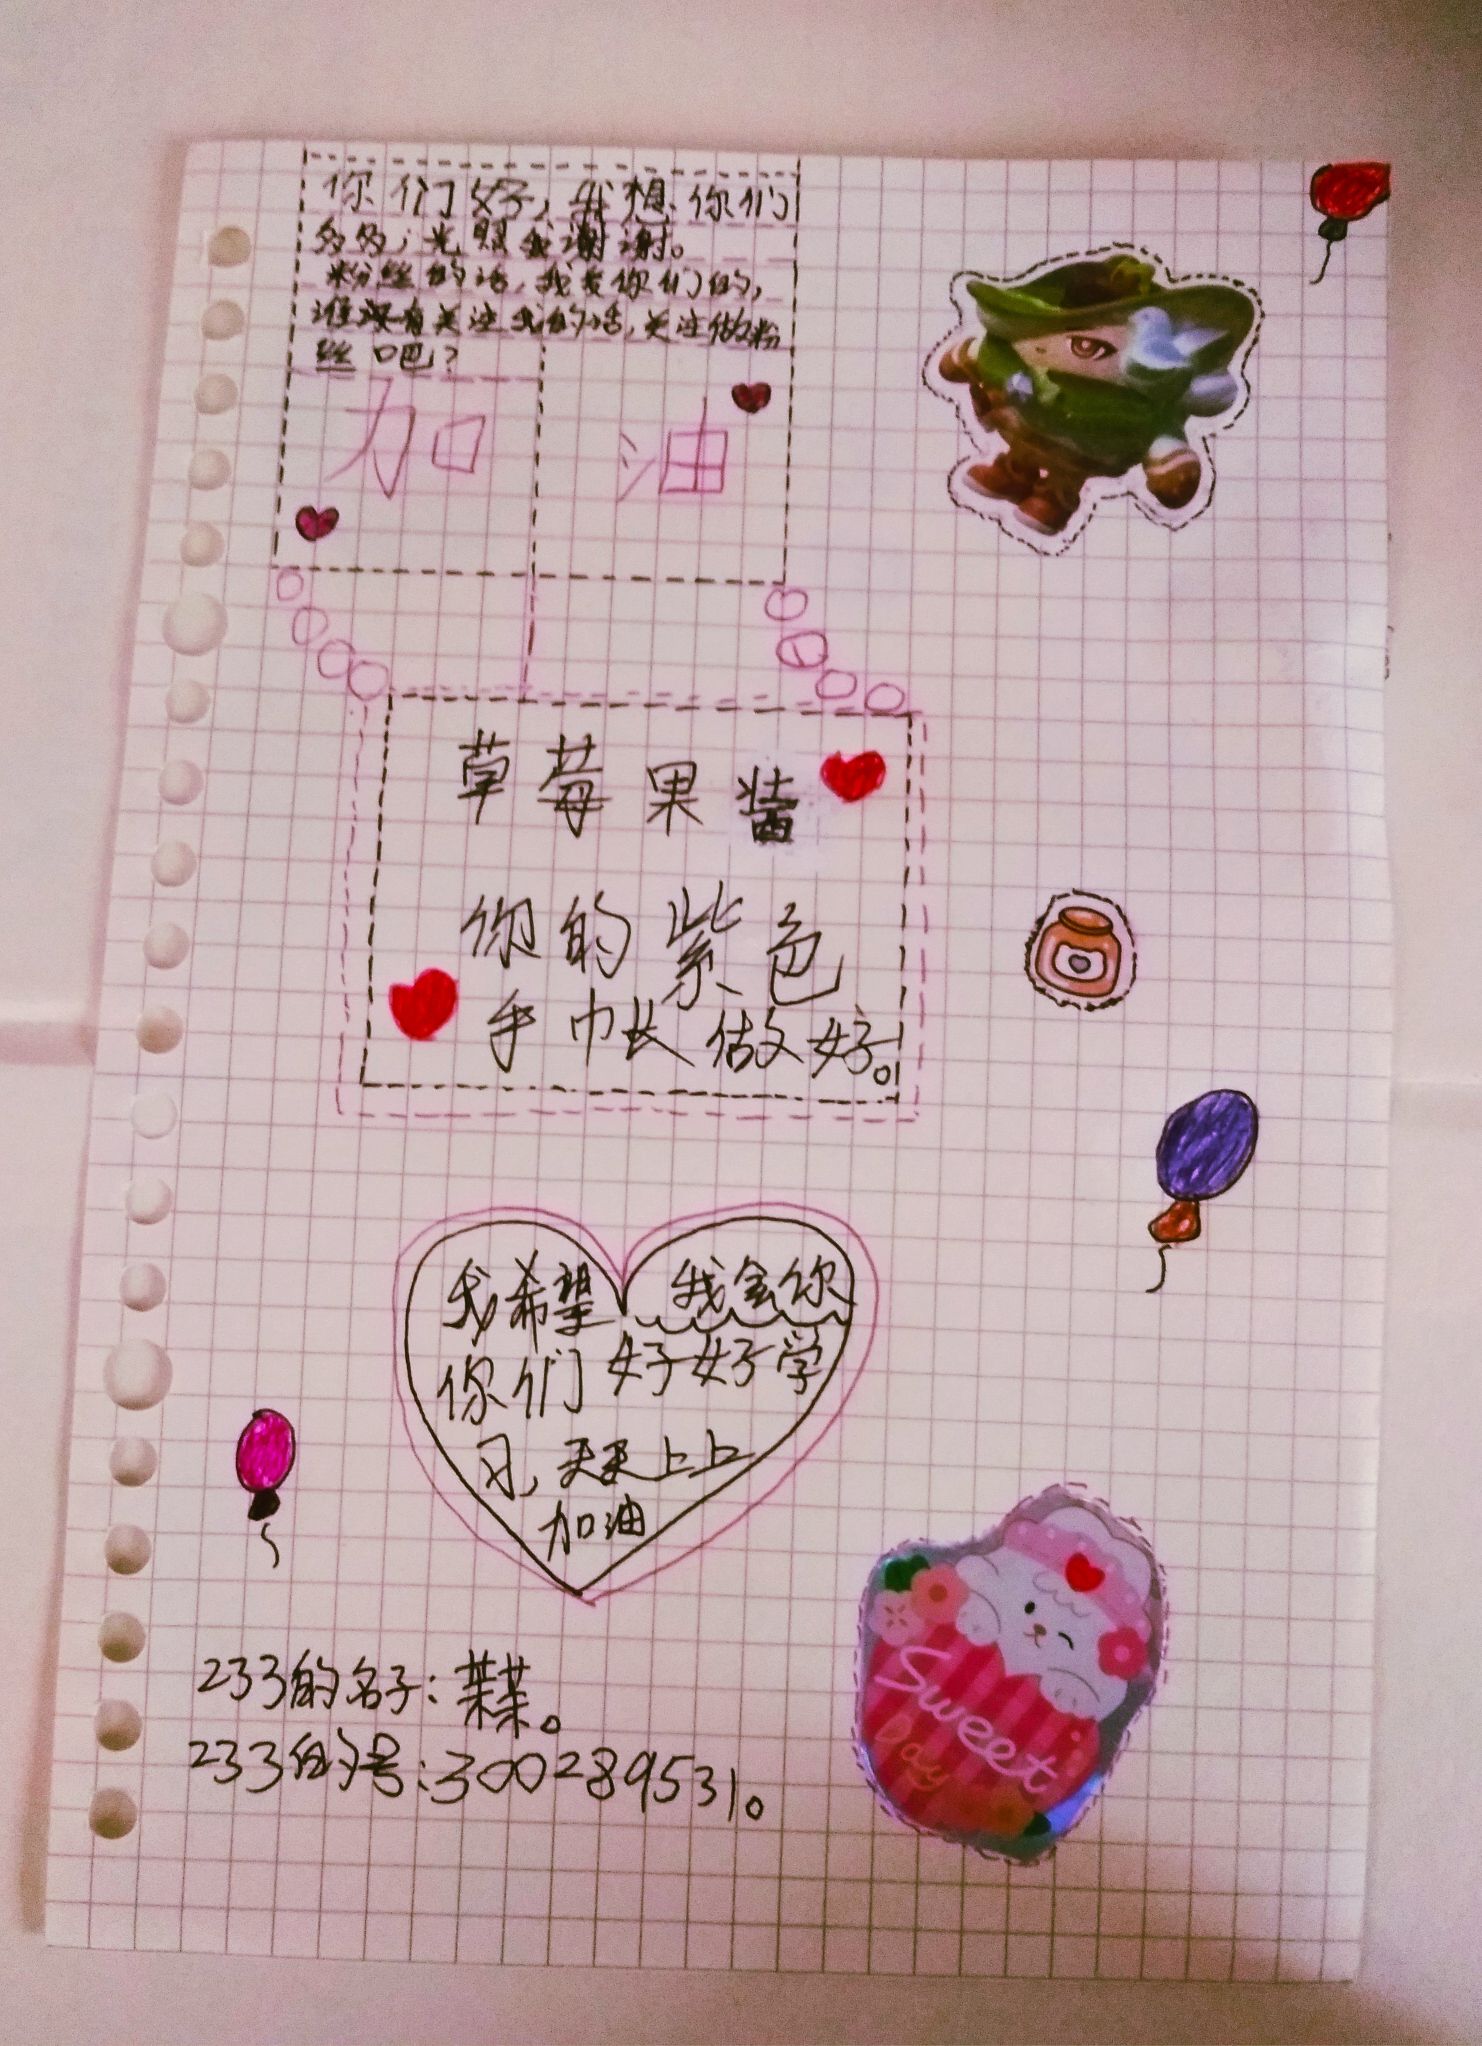 你们好,我想你们
多多,光照我谢谢。
粉丝的话,我爱你们的,
谁没有关注我的话,关注做粉
丝吧?
加 油
草莓果酱
你的紫色
手巾长做好。
我希望 我会你
你们好好学
习,天天上上
加油
Sweet
Day
233的名子:茉茉。
233的号:300289531。